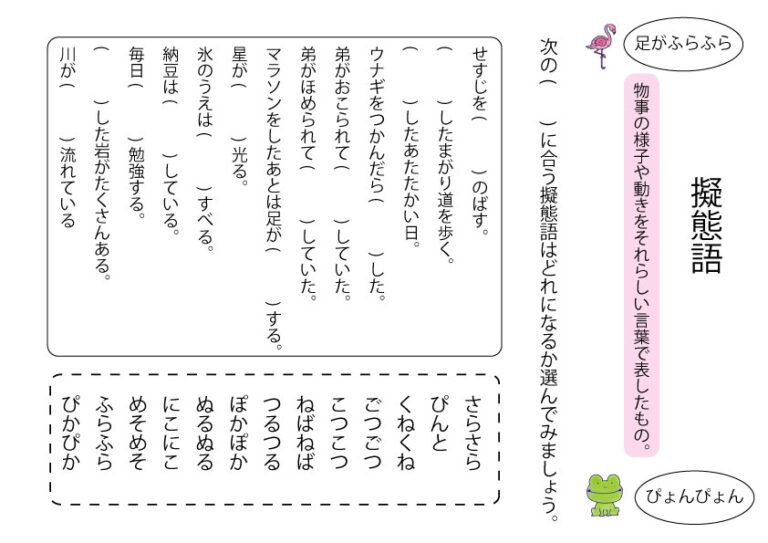 擬態語
足がふらふら
物事の様子や動きをそれらしい言葉で表したもの。
ぴょんぴょん
次の(　　)に合う擬態語はどれになるか選んでみましょう。
せすじを(　　)のばす。
(　　)したまがり道を歩く。
(　　)したあたたかい日。
ウナギをつかんだら(　　)した。
弟がおこられて(　　)していた。
弟がほめられて(　　)していた。
マラソンをしたあとは足が(　　)する。
星が(　　)光る。
氷のうえは(　　)すべる。
納豆は(　　)している。
毎日(　　)勉強する。
(　　)した岩がたくさんある。
川が(　　)流れている
さらさら
ぴんと
くねくね
ごつごつ
こつこつ
ねばねば
つるつる
ぽかぽか
ぬるぬる
にこにこ
めそめそ
ふらふら
ぴかぴか